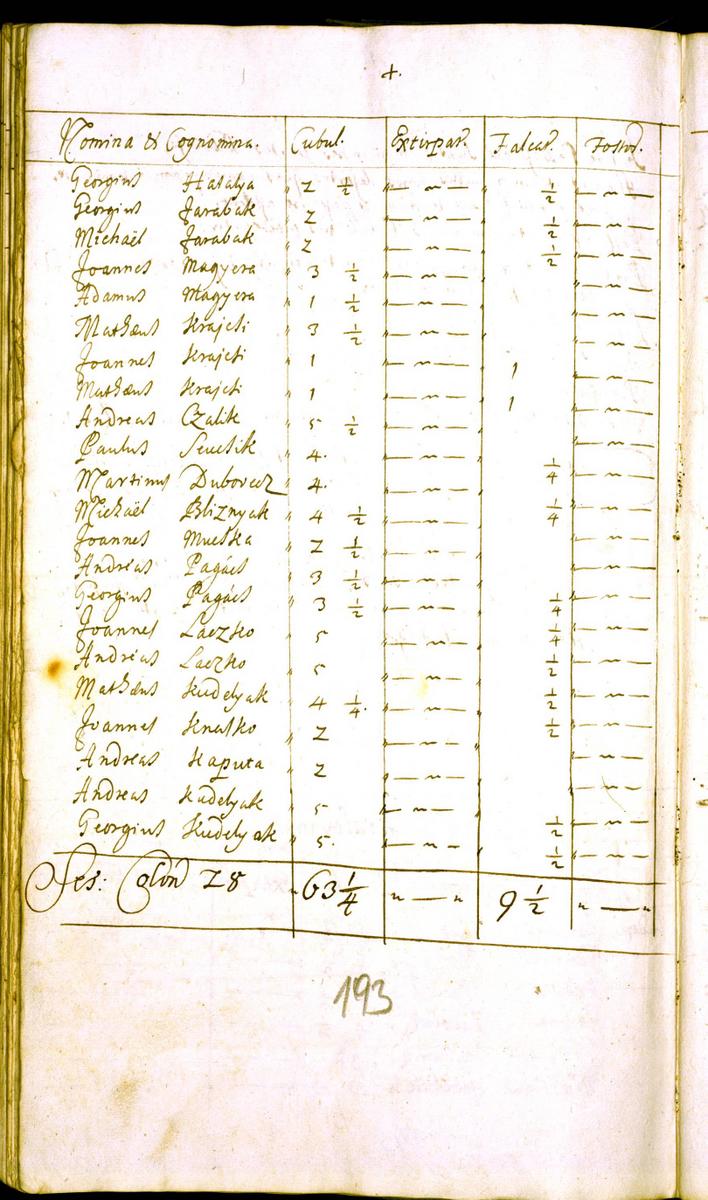 4.
Nomina & Cognomina. Cubul. Extirpat. Falcat. Fossor.
Georgius Hatalya " 2 1/2 "— " — " 1/2 "— " —
Georgius Jarabak " 2 "— " — " 1/2 "— " —
Michaël Jarabak " 2 "— " — " 1/2 "— " —
Joannes Magyera " 3 1/2 "— " — " "— " —
Adamus Magyera " 1 1/2 "— " — " "— " —
Mathæus Krajcsi " 3 1/2 "— " — " "— " —
Joannes Krajcsi " 1 "— " — " 1 "— " —
Mathæus Krajcsi " 1 "— " — " 1 "— " —
Andreas Czalik " 5 1/2 "— " — " "— " —
Paulus " 4. "— " — " 1/4 "— " —
Martinus Dubovecz " 4. "— " — " 1/4 "— " —
Michaël Bliznyak " 4 1/2 "— " — " "— " —
Joannes " 2 1/2 "— " — " "— " —
Andreas Pagács " 3 1/2 "— " — " 1/4 "— " —
Georgius Pagács " 3 1/2 "— " — " 1/4 "— " —
Joannes Laczko " 5 "— " — " 1/2 "— " —
Andreas Laczko " 5 "— " — " 1/2 "— " —
Mathæus Kudelyak " 4 1/4. "— " — " 1/2 "— " —
Joannes " 2 "— " — " "— " —
Andreas Kaputa " 2 "— " — " "— " —
Andreas Kudelyak " 5 "— " — " 1/2 "— " —
Georgius Kudelyak " 5. "— " — " 1/2 "— " —
28 63 1/4 " — " 9 1/2 " — "
193